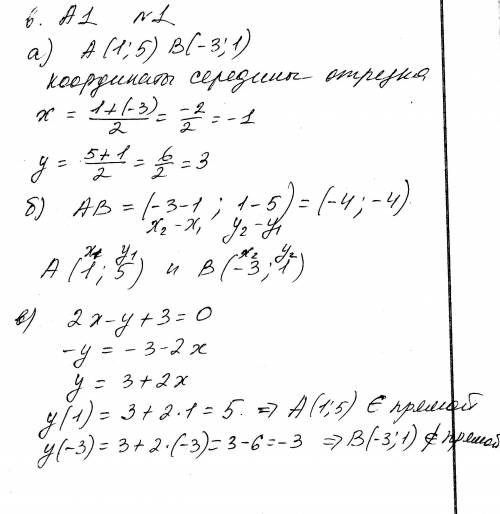 в. А1 №1
а) А(1;5) В(-3;1)
координаты середины отрезка
x = 1+(-3)/2 = -2/2 = -1
y = 5+1/2 = 6/2 = 3
б) АВ = (-3-1 ; 1-5) = (-4; -4)
x₂-x₁ y₂-y₁
x₁ y₁ x₂ y₂
А(1; 5) и В(-3; 1)
в) 2x-y+3=0
-y = -3-2x
y = 3+2x
y(1) = 3+2·1 = 5. ⇒ А(1;5) ∈ прямой
y(-3) = 3+2·(-3) = 3-6 = -3 ⇒ В(-3;1) ∉ прямой